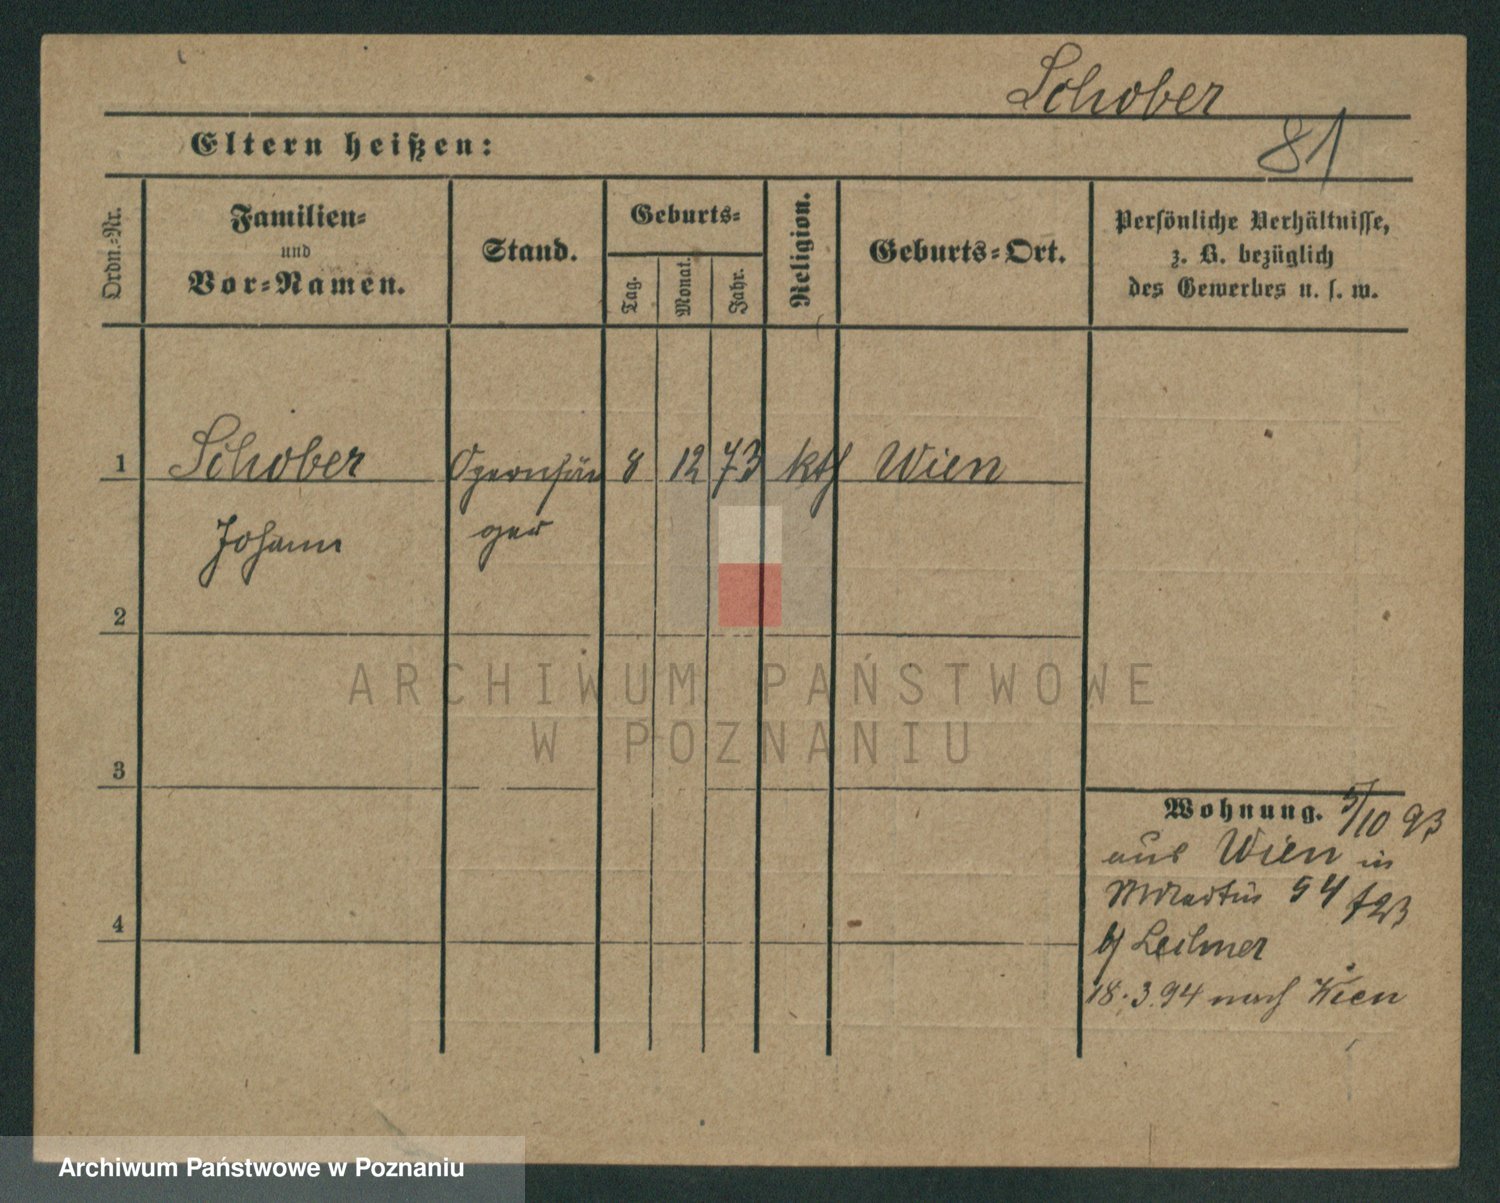 Schober
81
Eltern heißen:
Ordn.-Nr.
Familien-
und
Vor-Namen.
Stand.
Geburts-
Tag.
Monat.
Jahr.
Religion.
Geburts-Ort.
Persönliche Verhältnisse,
z. B. bezüglich
des Gewerbes u. s. w.
1 Schober Opernsän 8 12 73 kth Wien
Johann ger
2
ARCHIWUM PAŃSTWOWE
W POZNANIU
3
Wohnung. 5/10 93
aus Wien in
54
b/
18.3.94 nach Wien
4
Archiwum Państwowe w Poznaniu